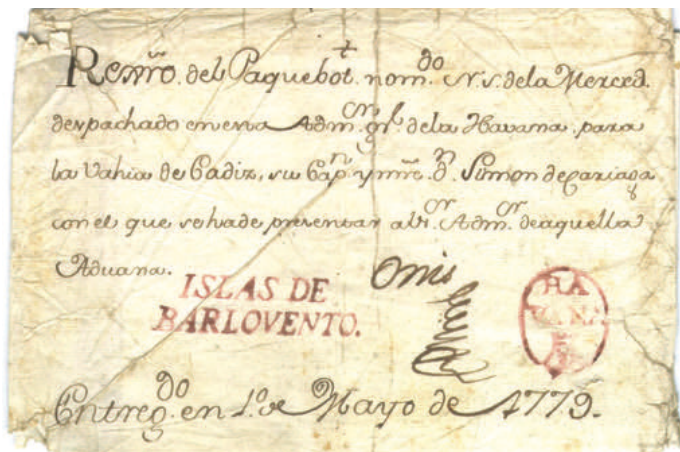 Rexᵗʳᵒ. del Paquebot. nomᵈᵒ. N. S. de la Merced.
despachado en esta Admᵒⁿ. grˡ. de la Havana para
la Vahia de Cadiz, su Capⁿ. y mre. Dⁿ. Simon de
con el que se ha de presentar al Sʳ. Admᵒʳ. de aquella
Aduana.
Onis
ISLAS DE
BARLOVENTO.
HA
VANA
Entregᵈᵒ. en 1º. de Mayo de 1779.